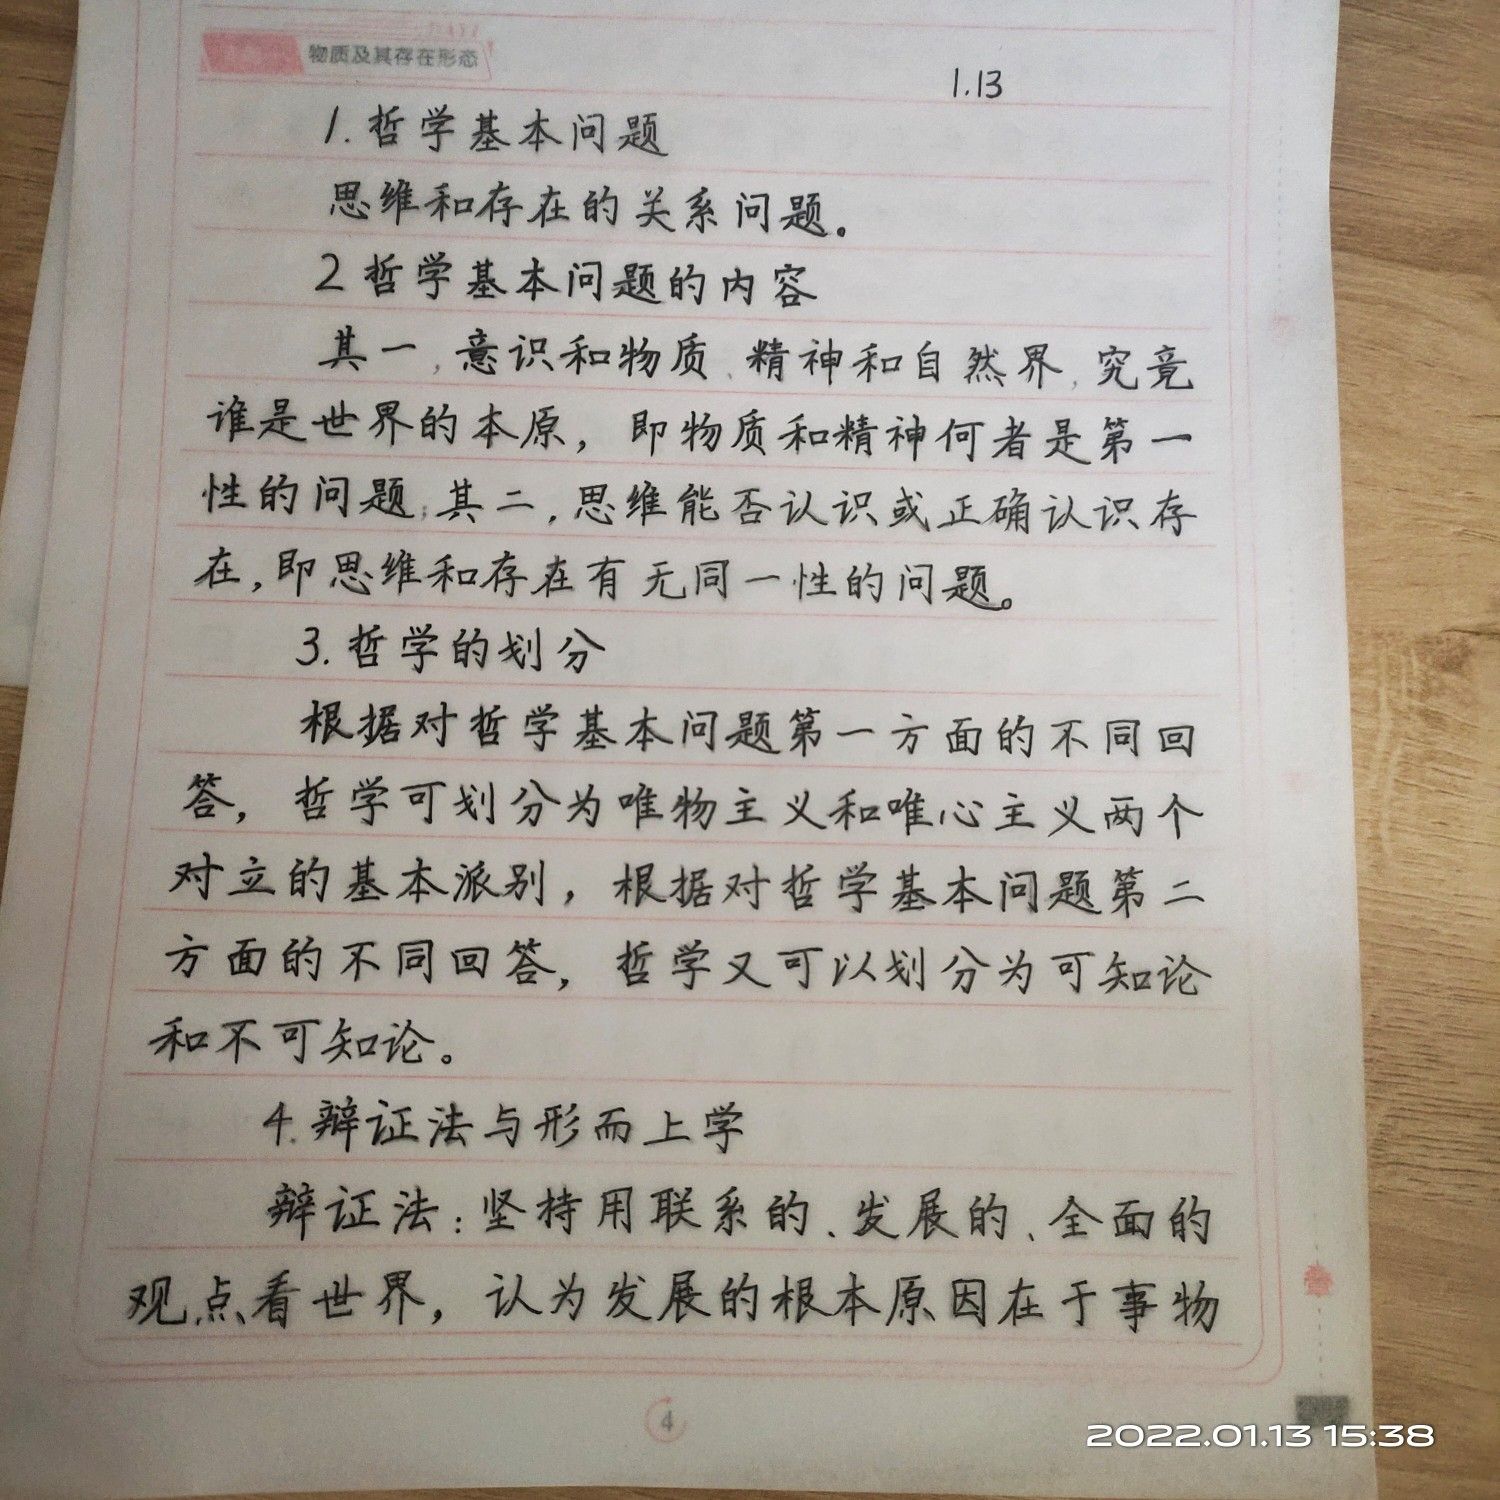 物质及其存在形态
1.13
1.哲学基本问题
思维和存在的关系问题。
2 哲学基本问题的内容
其一,意识和物质、精神和自然界,究竟
谁是世界的本原，即物质和精神何者是第一
性的问题;其二,思维能否认识或正确认识存
在,即思维和存在有无同一性的问题。
3.哲学的划分
根据对哲学基本问题第一方面的不同回
答，哲学可划分为唯物主义和唯心主义两个
对立的基本派别，根据对哲学基本问题第二
方面的不同回答，哲学又可以划分为可知论
和不可知论。
4.辩证法与形而上学
辩证法:坚持用联系的、发展的、全面的
观点看世界，认为发展的根本原因在于事物
4
2022.01.13 15:38